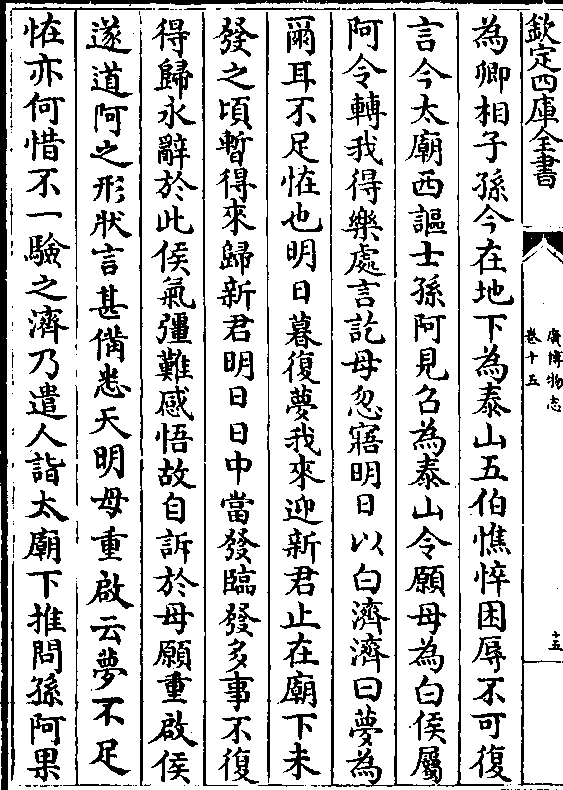 欽定四庫全書
廣博物志
卷十五
十五
為卿相子孫今在地下為泰山五伯憔悴困辱不可復
言今太廟西謳士孫阿見召為泰山令願母為白侯屬
阿令轉我得樂處言訖母忽寤明日以白濟濟曰夢為
爾耳不足怪也明日暮復夢我來迎新君止在廟下未
發之頃暫得來歸新君明日日中當發臨發多事不復
得歸永辭於此侯氣彊難感悟故自訴於母願重啟侯
遂道阿之形狀言甚備悉天明母重啟云夢不足
怪亦何惜不一驗之濟乃遣人詣太廟下推問孫阿果